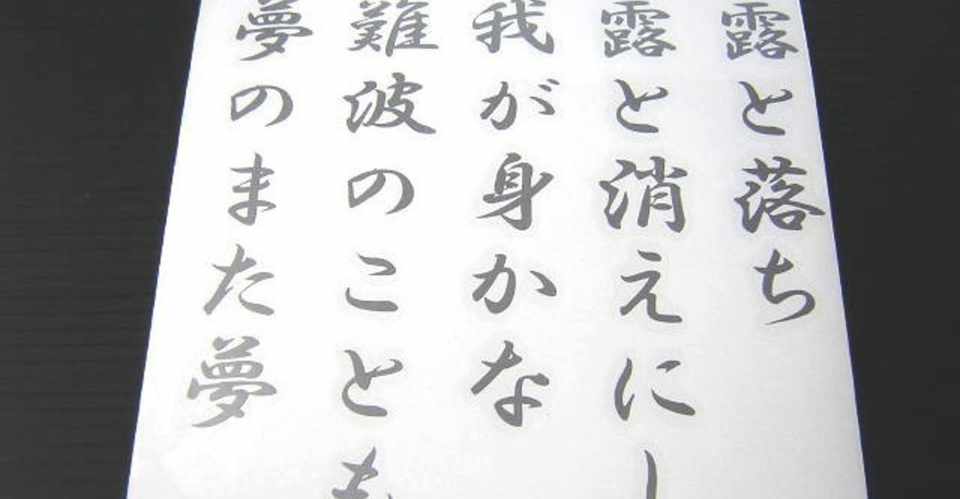 露と落ち
露と消えにし
我が身かな
難波のことも
夢のまた夢